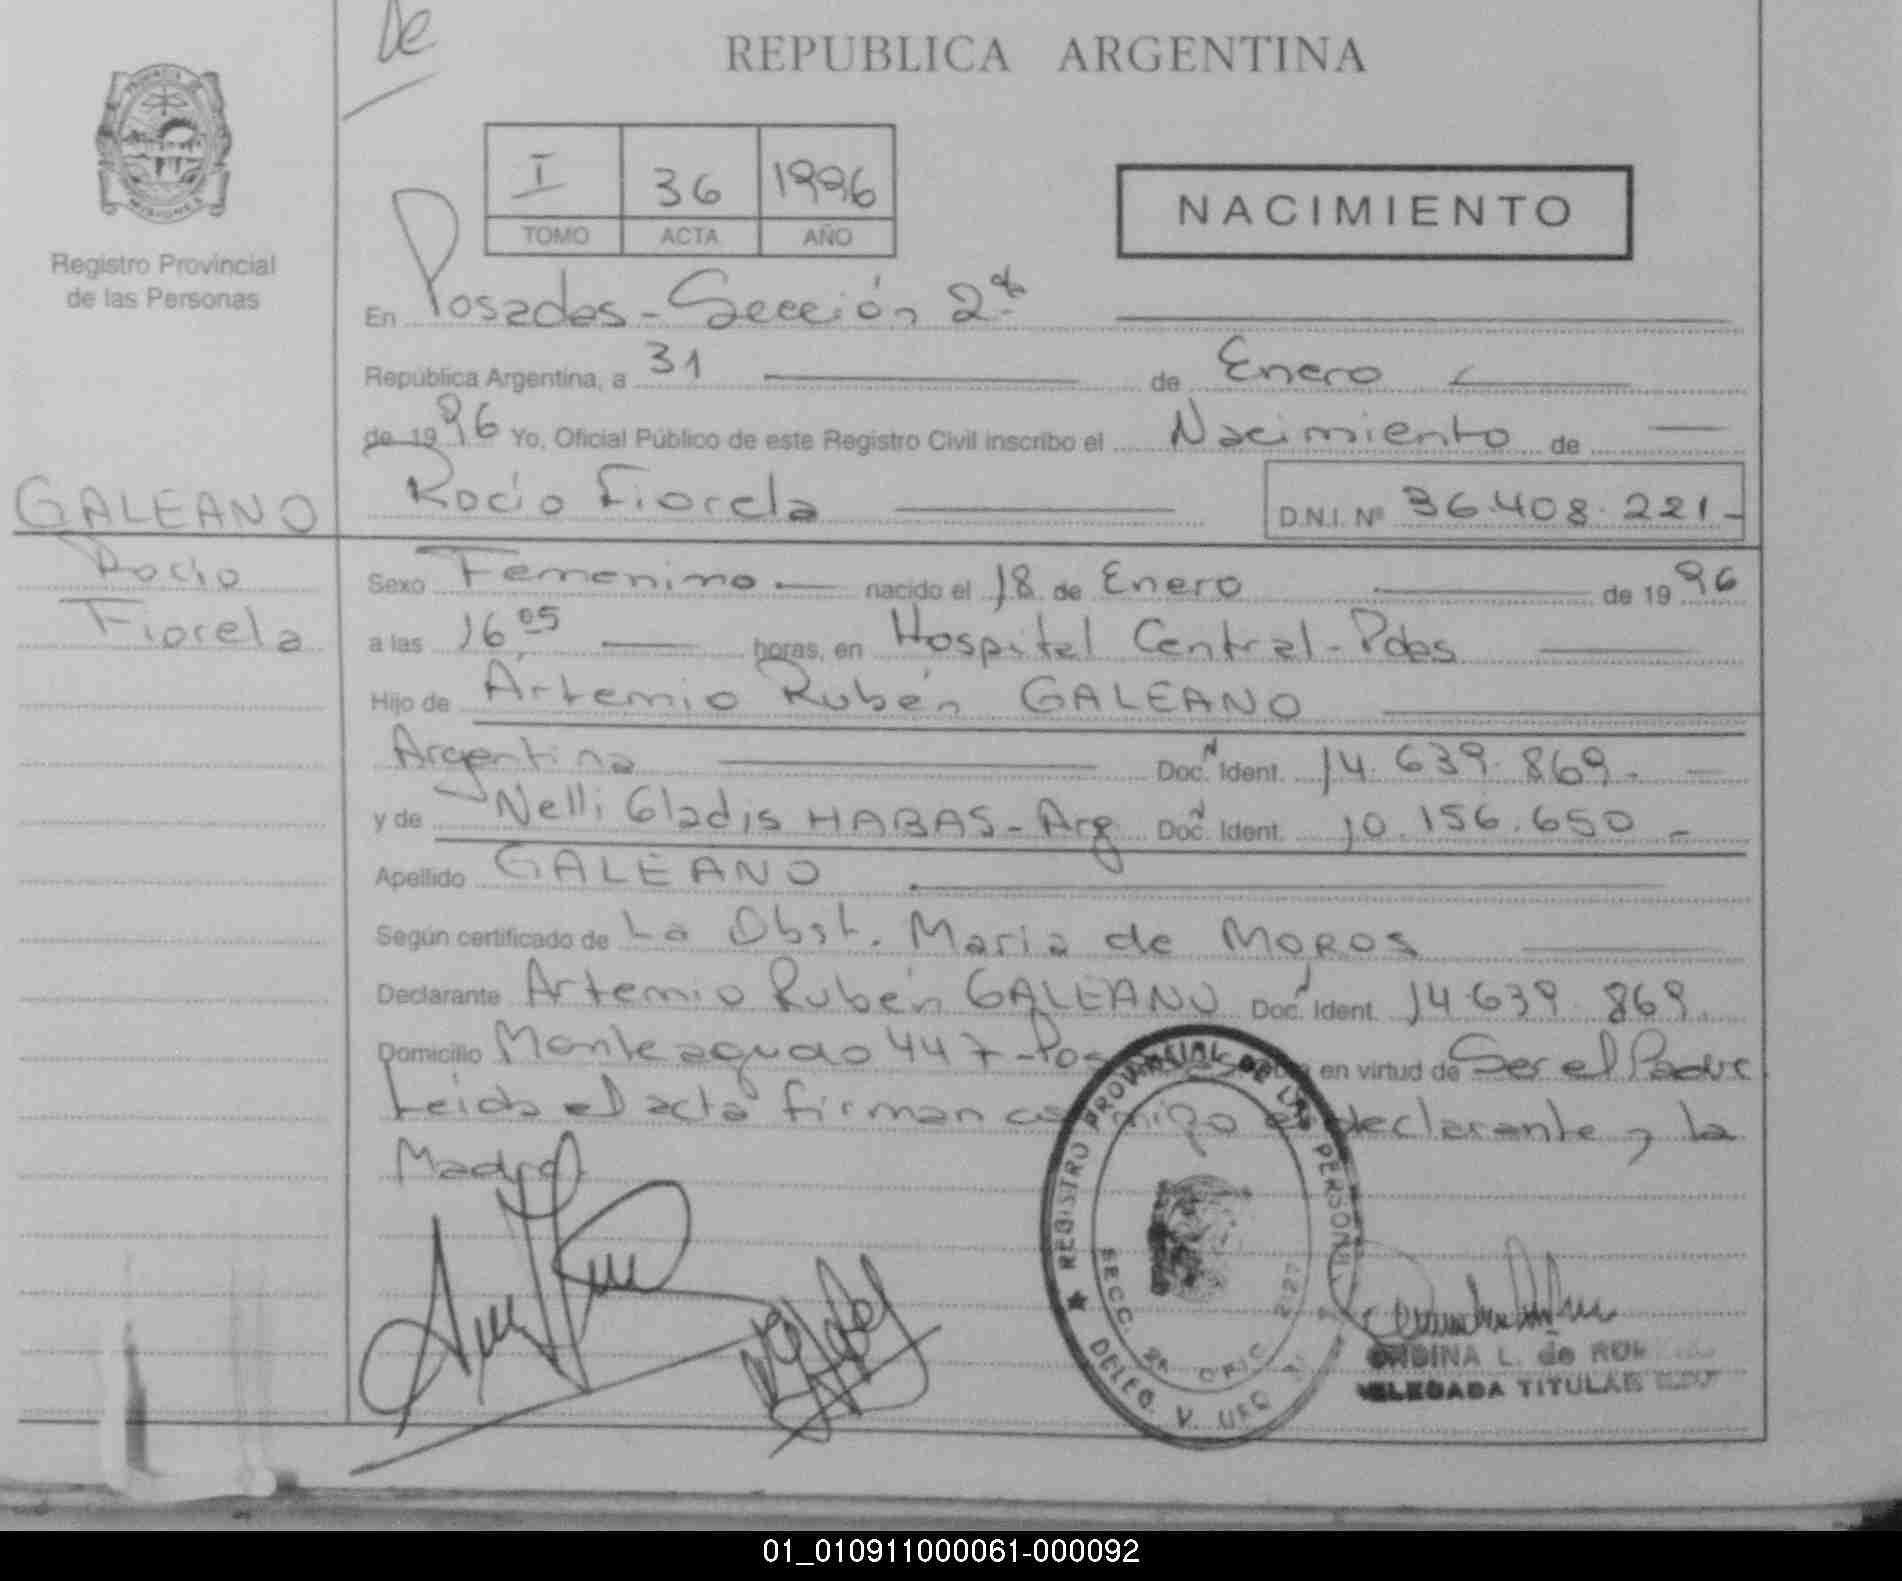 De
REPUBLICA ARGENTINA
MISIONES
Registro Provincial
de las Personas
I 36 1996
TOMO ACTA AÑO
NACIMIENTO
En Posadas - Sección 2ª
República Argentina, a 31 de Enero
de 1996 Yo, Oficial Público de este Registro Civil inscribo el Nacimiento de
GALEANO
Rocio
Fiorela
Rocío Fiorela D.N.I. Nº 36.408.221-
Sexo Femenino nacido el 18 de Enero de 1996
a las 16 05 horas, en Hospital Central - Pdas
Hijo de Artemio Rubén GALEANO
Argentina Doc. Ident. 14.639.869.
y de Nelli Gladis HABAS - Arg Doc. Ident. 10.156.650 -
Apellido GALEANO
Según certificado de La Obst. Maria de MOROS
Declarante Artemio Rubén GALEANO Doc. Ident. 14.639.869.
Domicilio Monteagudo 447 - en virtud de Ser el Padre
Leida el acta firman conmigo el declarante y la
Madre
REGISTRO PROVINCIAL DE LAS PERSONAS
SECC. 2ª OFIC.
DELEG.
L. de
DELEGADA TITULAR
01_010911000061-000092